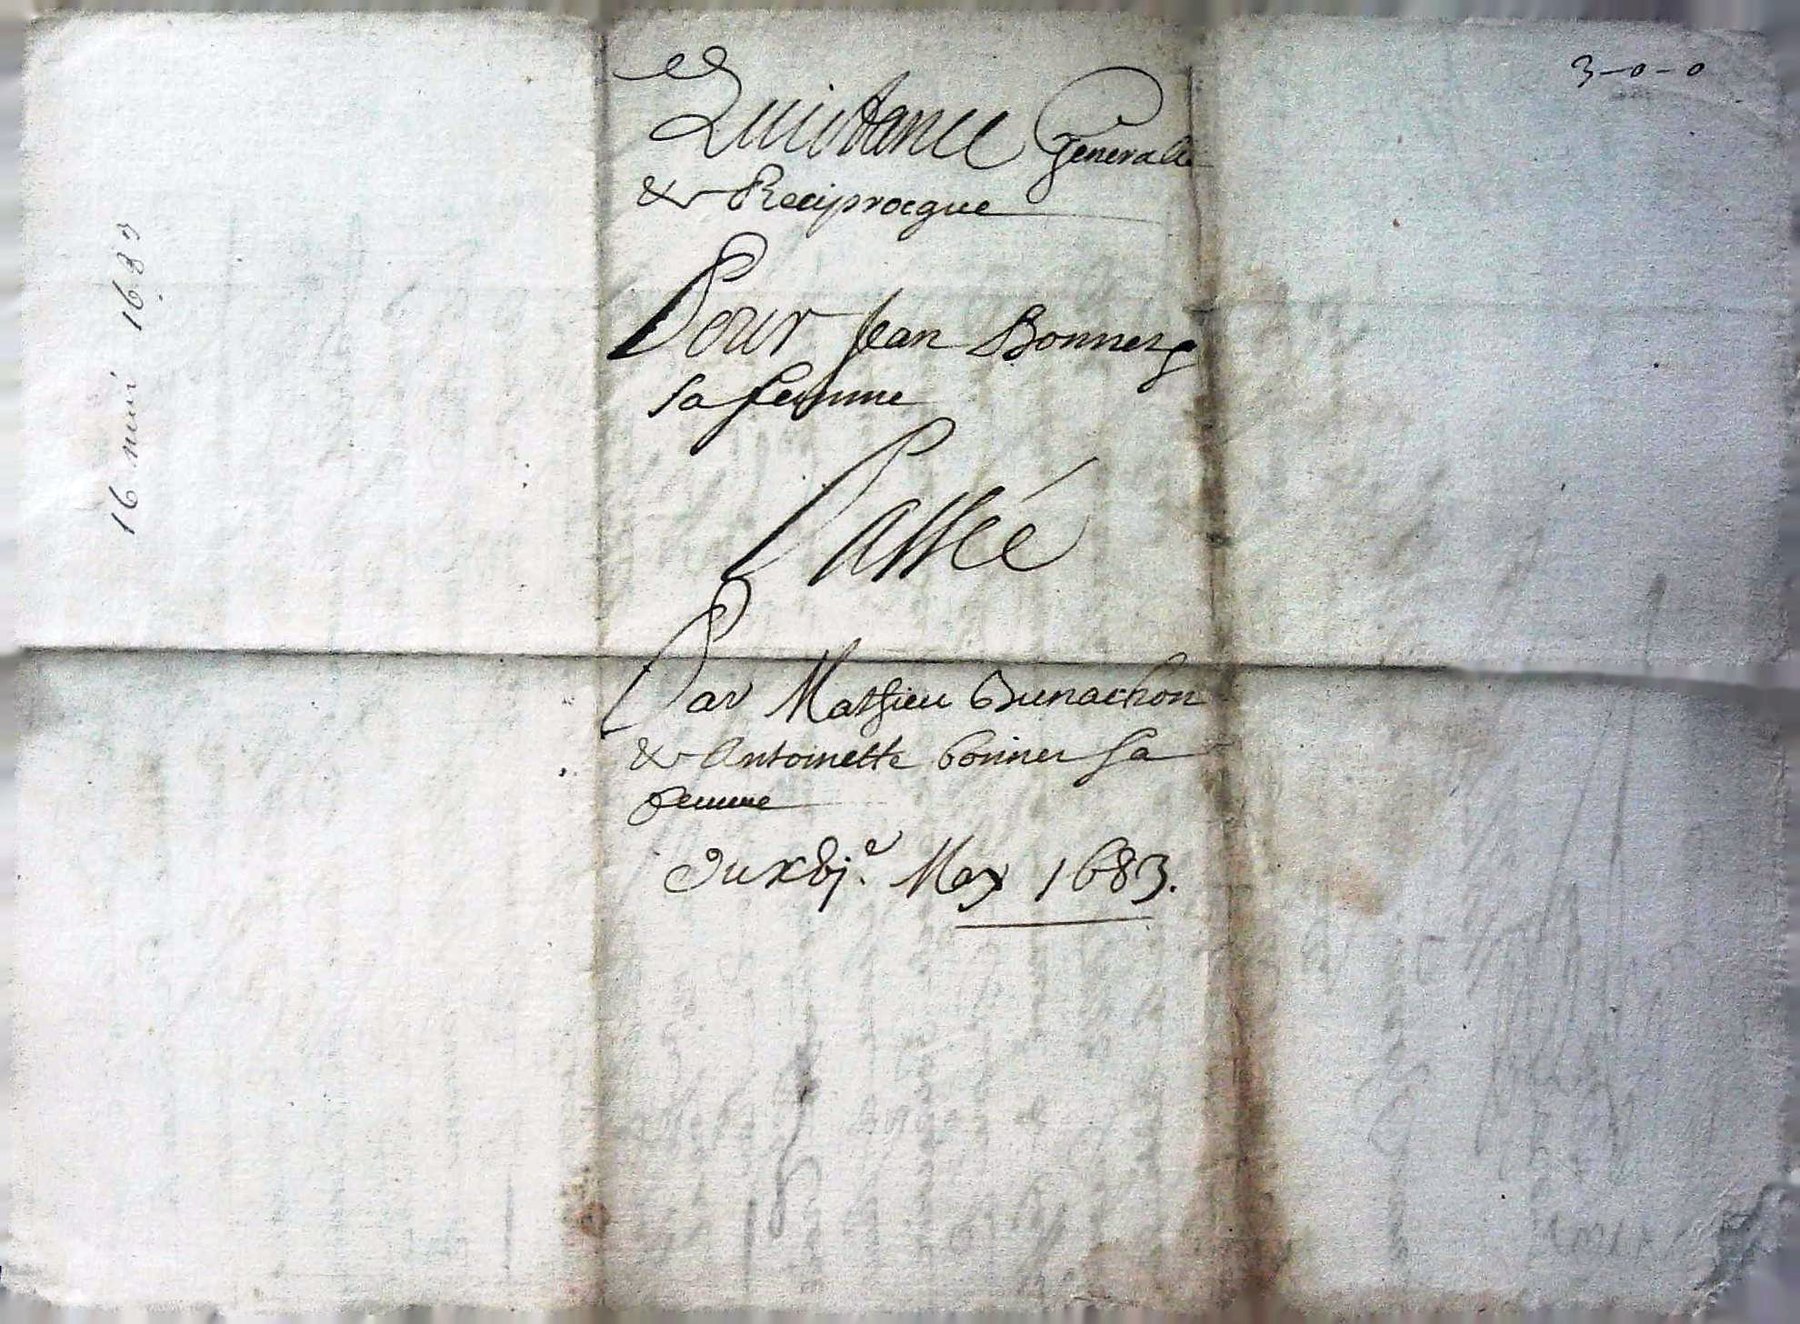 3-0-0
Quictance Generalle
& Reciprocque
Pour Jean Bonner &
sa femme
Passée
Par Mathieu Bunachon
& Antoinette bonner sa
femme
Du xvj.e May 1683.
16 mai 1683